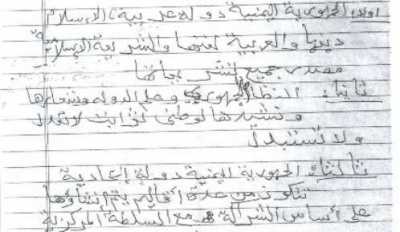 اولا: الجمهورية اليمنية دولة عربية، الاسلام
دينها والعربية لغتها والشريعة الإسلامية
مصدر جميع التشريعات
ثانيا: النظام الجمهوري وعلم الدولة وشعارها
ونشيدها الوطني ثوابت لا تعدل
ولا تستبدل
ثالثا: الجمهورية اليمنية دولة إتحادية
تتكون من عدة أقاليم يتم إنشاؤها
على أساس الشراكة مع السلطة المركزية